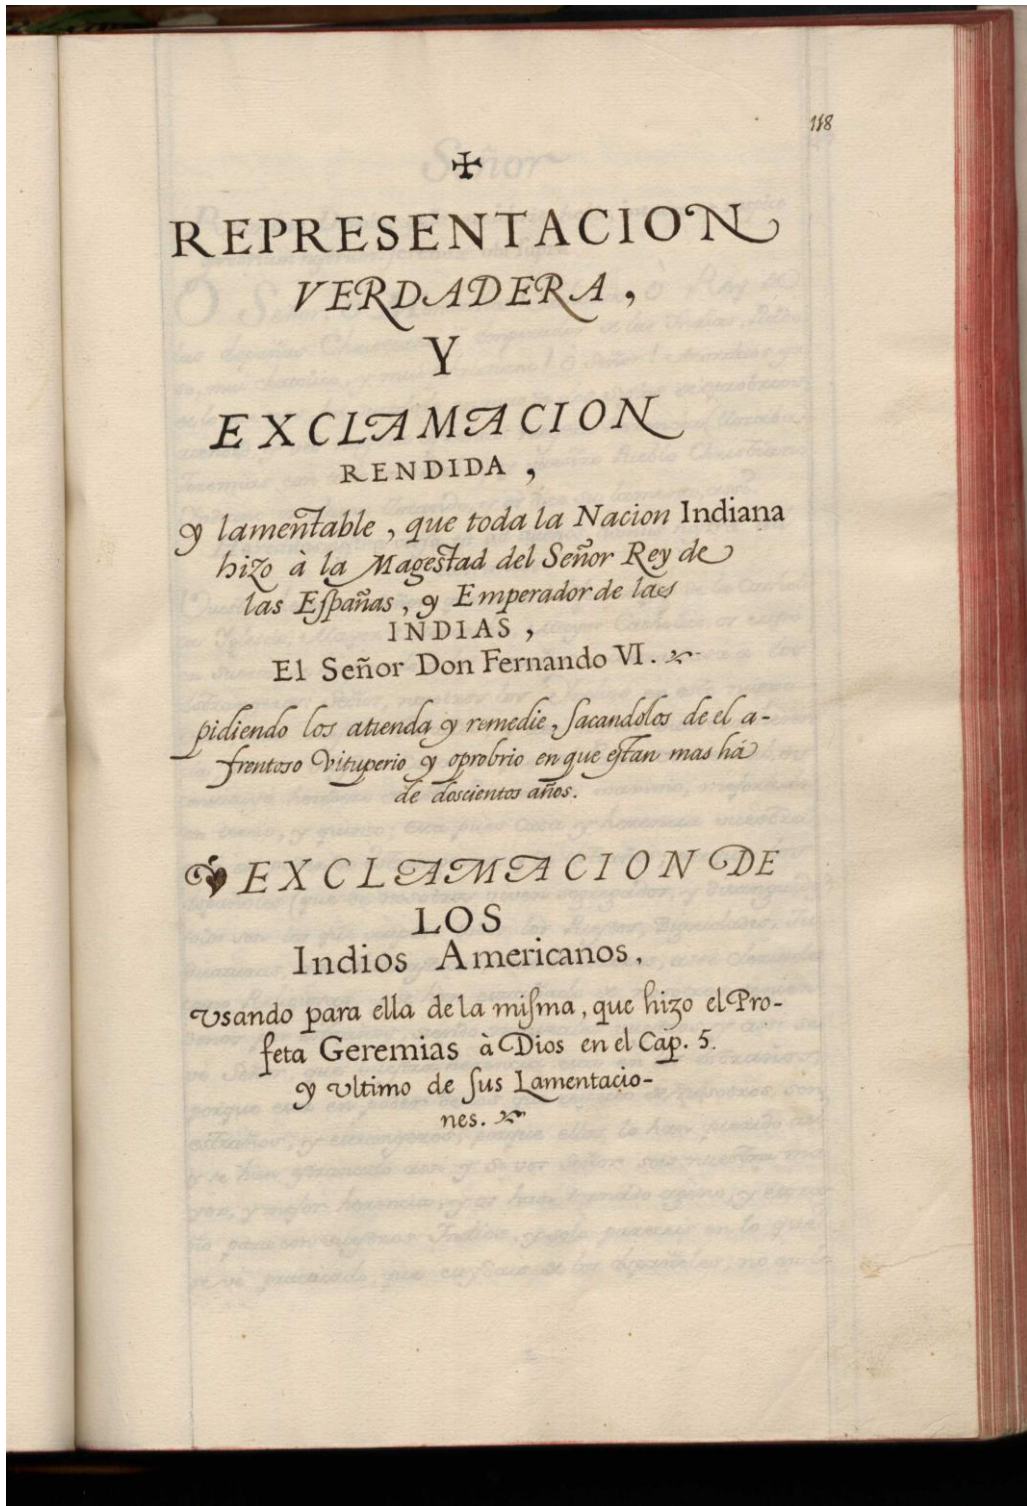 118
✠
REPRESENTACION
VERDADERA,
Y
EXCLAMACION
RENDIDA,
y lamentable, que toda la Nacion Indiana
hizo à la Magestad del Señor Rey de
las Eſpañas, y Emperador de las
INDIAS,
El Señor Don Fernando VI.
pidiendo los atienda y remedie, ſacandolos de el a-
frentoso Vituperio y oprobrio en que eſtan mas há
de doscientos años.
EXCLAMACION DE
LOS
Indios Americanos,
Usando para ella de la miſma, que hizo el Pro-
feta Geremias à Dios en el Cap. 5.
y ultimo de ſus Lamentacio-
nes.